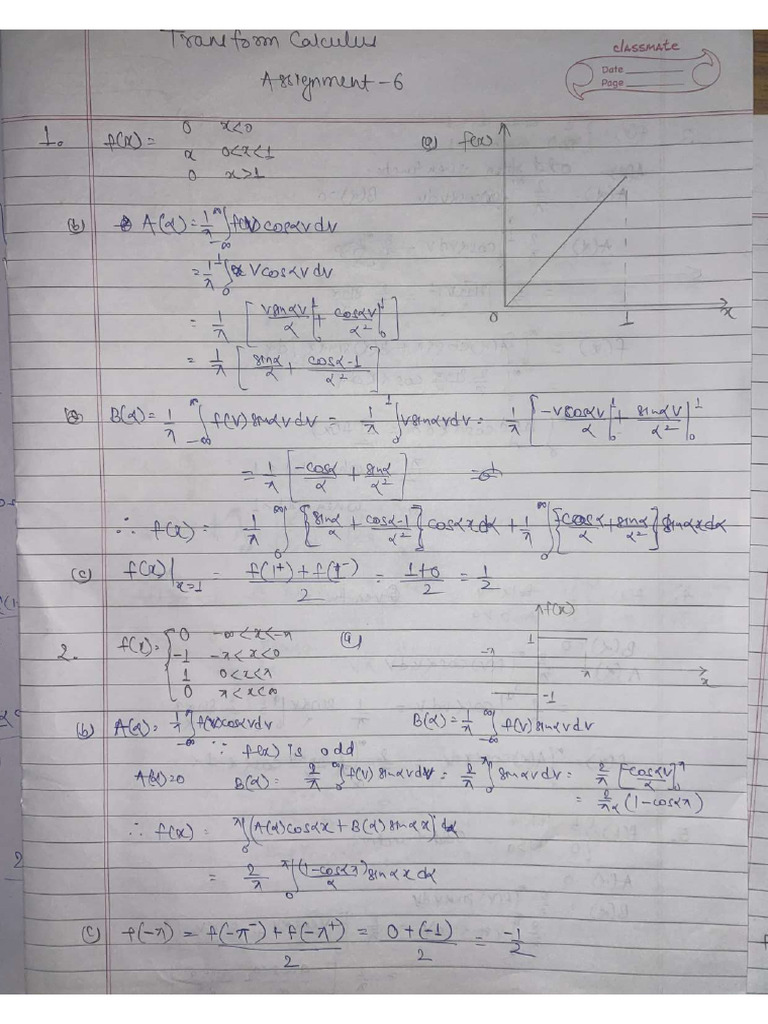 Transform Calculus
classmate
Date
Page
Assignment-6
1. f(x) = 0 x<0
x 0<x<1
0 x>1
(a) f(x)
0 1 x
(b) A(α) = 1/π ∫_{-∞}^{∞} f(v) cosαv dv
= 1/π ∫_0^1 v cosαv dv
= 1/π [ v sinαv/α |_0^1 + cosαv/α² |_0^1 ]
= 1/π [ sinα/α + cosα-1/α² ]
B(α) = 1/π ∫_{-∞}^{∞} f(v) sinαv dv = 1/π ∫_0^1 v sinαv dv = 1/π [ -v cosαv/α |_0^1 + sinαv/α² |_0^1 ]
= 1/π [ -cosα/α + sinα/α² ]
∴ f(x) = 1/π ∫_0^∞ { sinα/α + cosα-1/α² } cosαx dα + 1/π ∫_0^∞ { -cosα/α + sinα/α² } sinαx dα
(c) f(x)|_{x=1} = f(1⁺) + f(1⁻)/2 = 1+0/2 = 1/2
2. f(x) = { 0 -∞<x<-π
-1 -π<x<0
1 0<x<π
0 π<x<∞
(a) f(x)
1
-π π x
-1
(b) A(α) = 1/π ∫_{-∞}^{∞} f(v) cosαv dv B(α) = 1/π ∫_{-∞}^{∞} f(v) sinαv dv
∵ f(x) is odd
A(α) = 0 B(α) = 2/π ∫_0^∞ f(v) sinαv dv = 2/π ∫_0^π sinαv dv = 2/π [ cosαv/α ]_0^π
= 2/πα (1-cosαπ)
∴ f(x) = ∫_0^π (A(α) cosαx + B(α) sinαx) dα
= 2/π ∫_0^π (1-cosαπ)/α sinαx dα
(c) f(-π) = f(-π⁻) + f(-π⁺)/2 = 0+(-1)/2 = -1/2